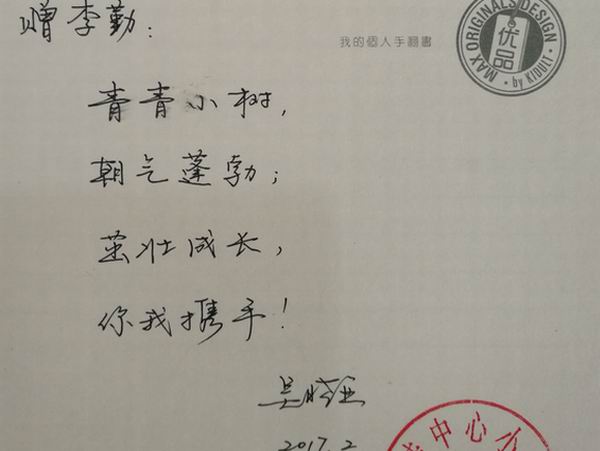 赠李勤：
我的個人手翻書
MAX ORIGINALS DESIGN
优品
by KIDULT
青青小树，
朝气蓬勃；
茁壮成长，
你我携手！
2017.2
中心小